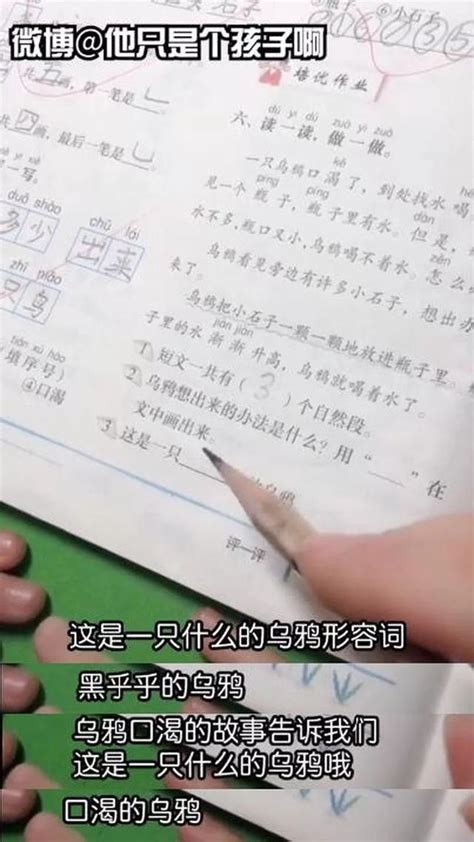 微博@他只是个孩子啊
⑥小石子
培优作业
共四画,第一笔是
共四画,最后一笔是
写。
duō shǎo
多少
chū lái
出来
zhī niǎo
只鸟
tián xù hào
填序号)
④口渴
dú yi dú zuò yi zuò
六、读一读,做一做。
kě
一只乌鸦口渴了,到处找水喝
píng píng dàn
见一个瓶子,瓶子里有水。但是,
水不多,瓶口又小,乌鸦喝不着水。怎么
乌鸦看见旁边有许多小石子,想出办
来了。
乌鸦把小石子一颗一颗地放进瓶子里。
jiàn jiàn
子里的水渐渐升高,乌鸦就喝着水了。
1 短文一共有( 3 )个自然段。
2 乌鸦想出来的办法是什么?用“___”在
文中画出来。
3 这是一只
乌鸦
评一评
这是一只什么的乌鸦形容词
黑乎乎的乌鸦
乌鸦口渴的故事告诉我们
这是一只什么的乌鸦哦
口渴的乌鸦